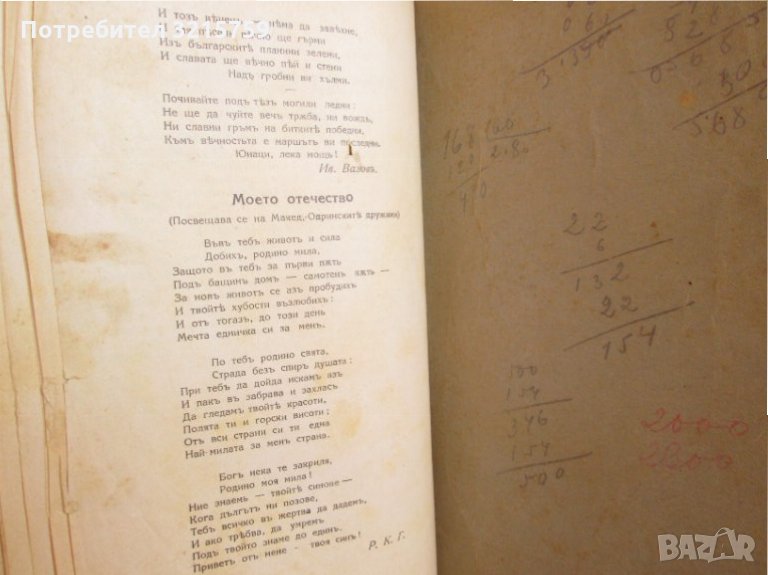 Потребител 3215759
И тозъ вѣченъ нѣма да заваѣне,
ще гърми
Изъ българскитѣ планини зелени,
И славата ще вѣчно пѣй и стени
Надъ гробни ви хълми.
Почивайте подъ тѣзъ могили ледни:
Не ще да чуйте вечъ тржба, ни вождь,
Ни славни гръмъ на биткитѣ победни,
Къмъ вѣчностьта е маршътъ ви последенъ.
Юнаци, лека нощь!
Ив. Вазовъ.
Моето отечество
(Посвещава се на Макед.-Одринскитѣ дружини)
Въвъ тебъ животъ и сила
Добихъ, родино мила,
Защото въ тебъ за първи пѫть
Подъ бащинъ домъ — самотенъ кѫть —
За новъ животъ се азъ пробудихъ
И твоитѣ хубости възлюбихъ:
И отъ тогазъ, до този день
Мечта едничка си за менъ.
По тебъ родино свята,
Страда безъ спиръ душата:
При тебъ да дойда искамъ азъ
И пакъ въ забрава и захласъ
Да гледамъ твойтѣ красоти,
Полята ти и горски висоти:
Отъ вси страни си ти една
Най-милата за менъ страна.
Богъ нека те закриля,
Родино моя мила!
Ние знаемъ — твоитѣ синове —
Кога дългътъ ни позове,
Тебъ всичко въ жертва да дадемъ,
И ако трѣбва, да умремъ
Подъ твойто знаме до единъ.
Приветъ отъ мене - твоя синъ!
Р. К. Г.
568
168 100
120 2.80
40
22
6
132
22
154
100
154
346
154
500
2000
BAZAR